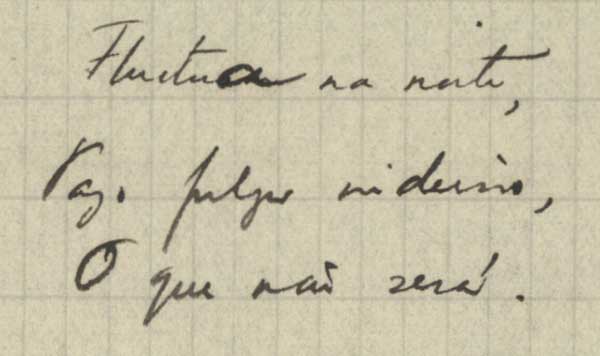 Fluctua na noite,
Vago fulgor indeciso,
O que não será.